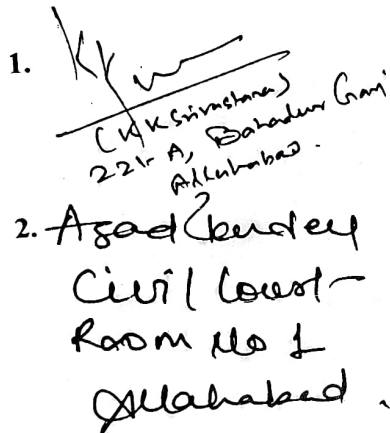 1. KK
(KK Srivastava)
221-A, Bahadur Ganj
Allahabad.
2. Azad Pandey
Civil Court
Room No 1
Allahabad.